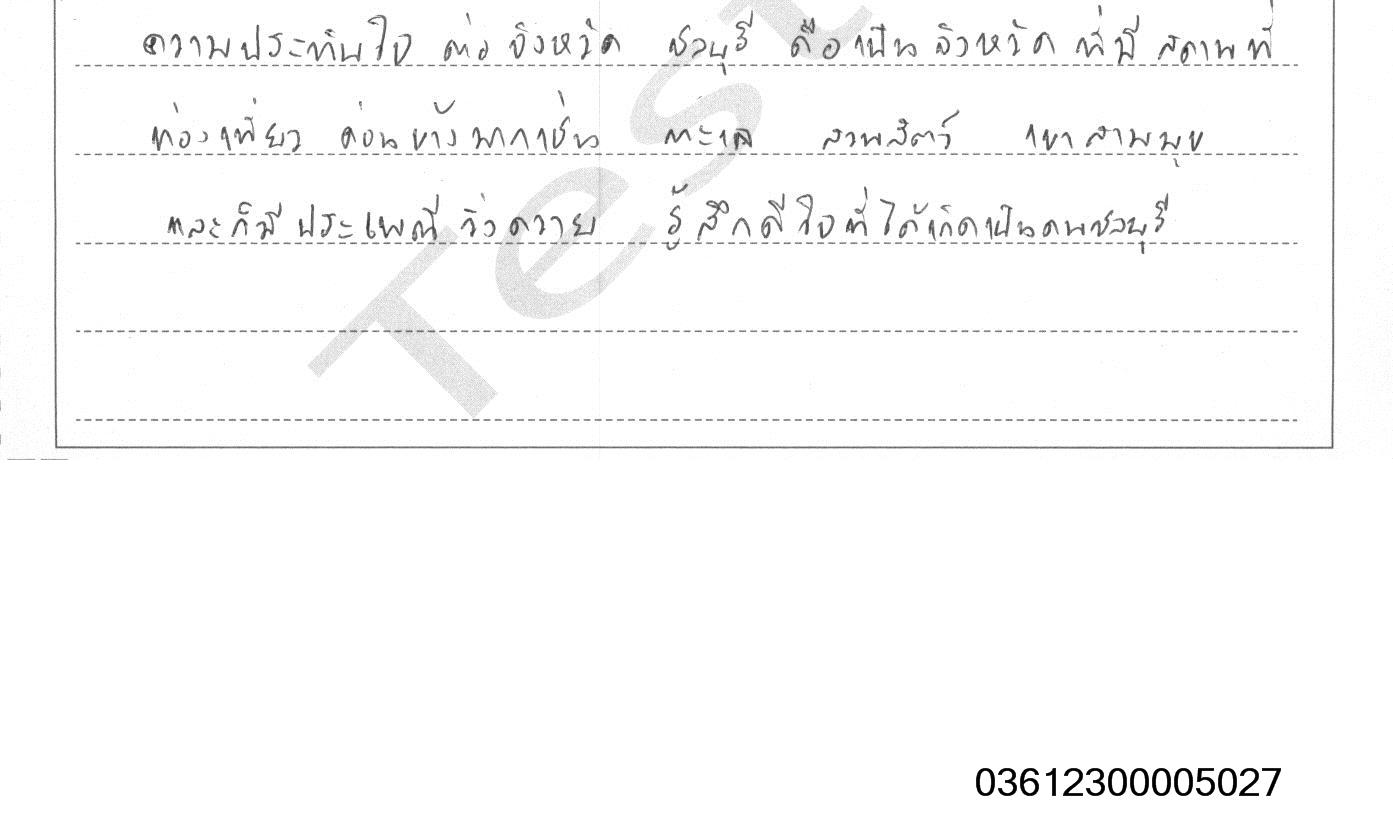 ความประทับใจ ต่อ จังหวัด ชลบุรี คือ เป็น จังหวัด ที่มี สถานที่
ท่องเที่ยว ค่อนข้างมากเช่น ทะเล สวนสัตว์ เขาสามมุข
และก็มี ประเพณี วิ่งควาย รู้สึกดีใจที่ได้เกิดเป็นคนชลบุรี
Test
03612300005027